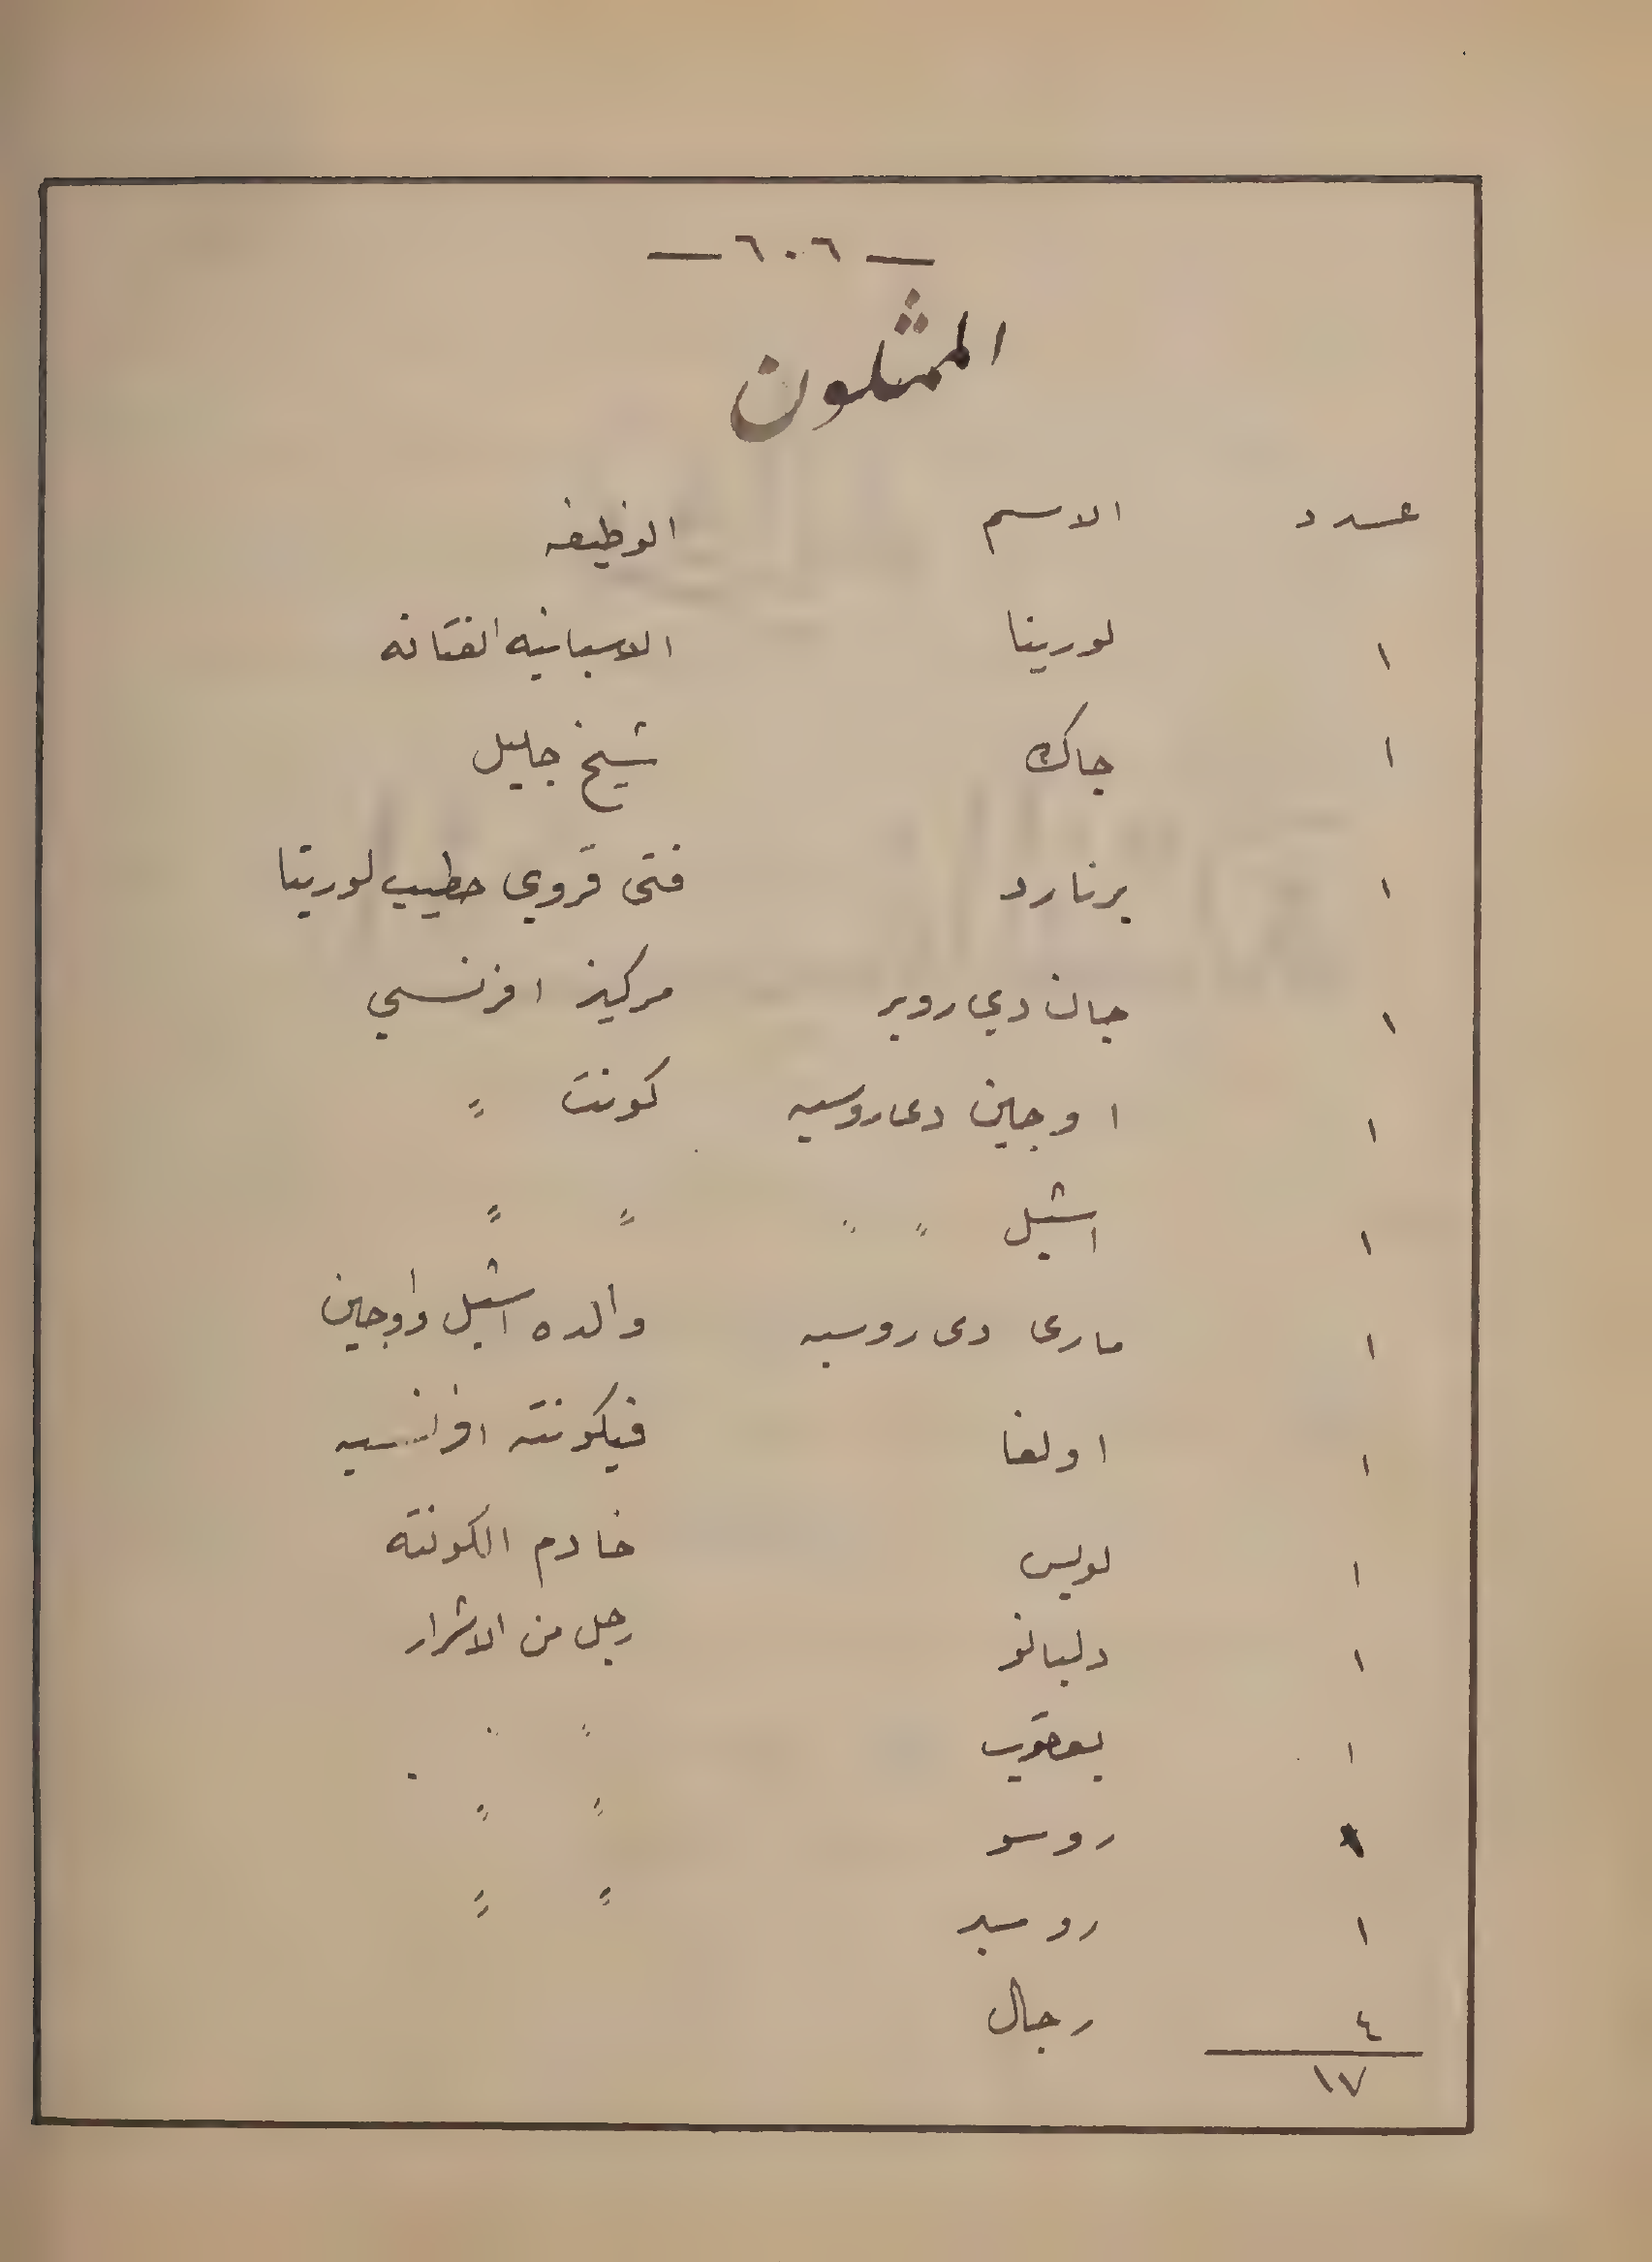 — ٦٠٦ —
الممثلون
عدد الاسم الوظيفه
١ لورينا الاسبانيه الفتانه
١ جاك شيخ جليل
١ برنارد فتى قروي خطيب لورينا
١ جان دي روبر مركيز افرنسي
١ اوجين دى روسيه كونت "
١ اشيل " " " "
١ مارى دى روسيه والده اشيل واوجين
١ اولغا فيكونته افرنسيه
١ لويس خادم الكونته
١ دلبانو رجل من الاشرار
١ يعقوب " "
١ روسو " "
١ " "
٤ رجال
١٧